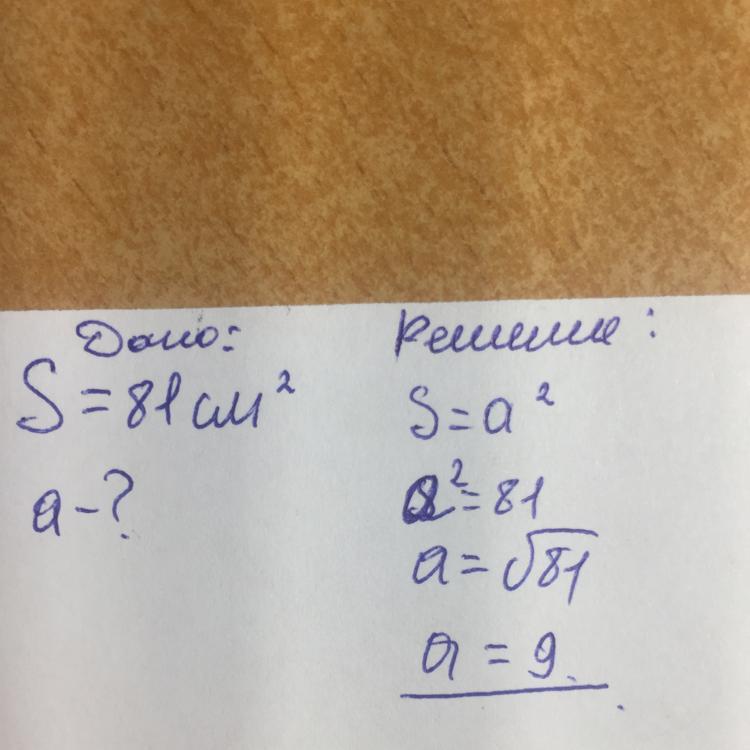 Дано:
S = 81 см²
a - ?
Решение:
S = a²
a² = 81
a = √81
a = 9.